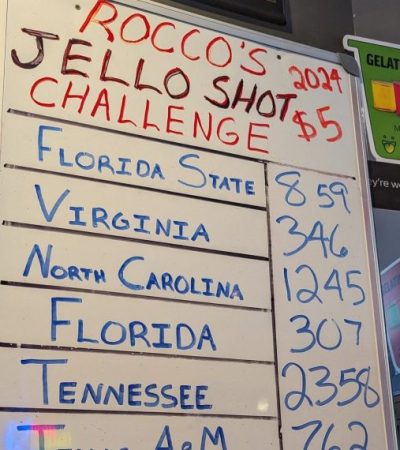 ROCCO'S
JELLO SHOT 2024
CHALLENGE $5
FLORIDA STATE 859
VIRGINIA 346
NORTH CAROLINA 1245
FLORIDA 307
TENNESSEE 2358
TEXAS A&M 762
GELAT